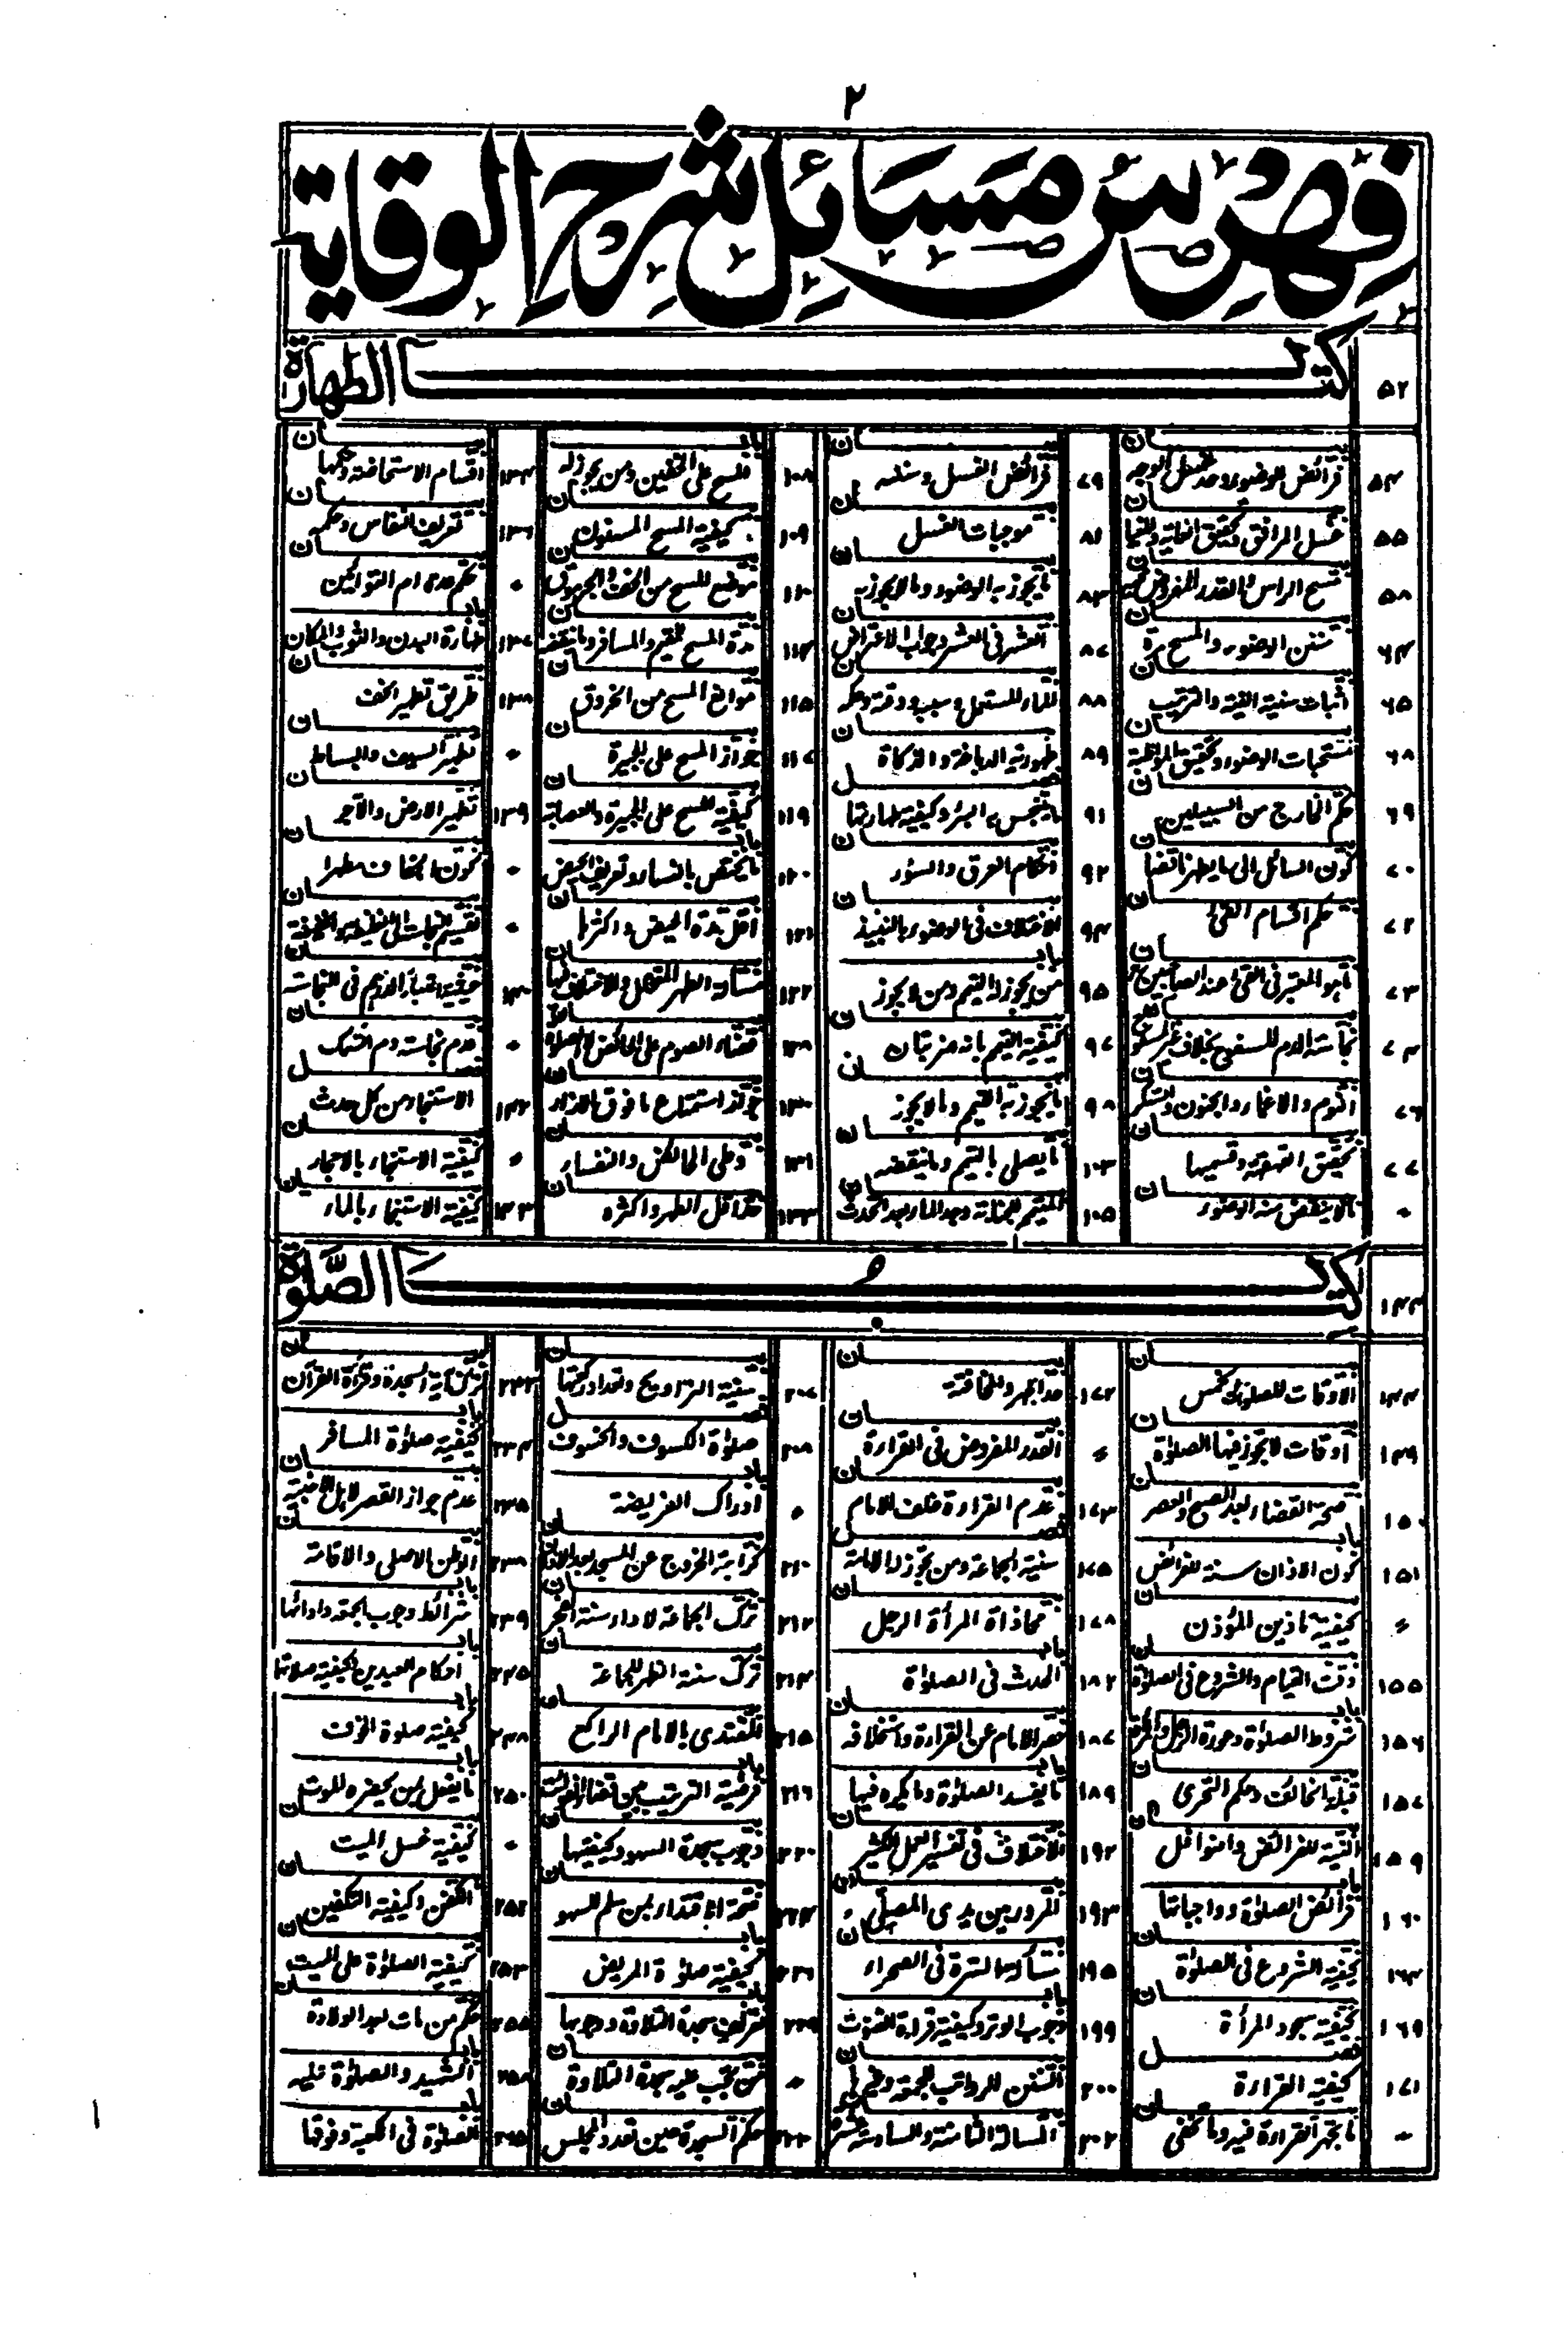 ٢
فهرس مسائل شرح الوقاية
٥٢ كتاب الطهارة
٥٤ بيان فرائض الوضوء وحد الوجه
٥٥ بيان غسل المرافق وتحقيق الغاية والمغيا
٥٨ بيان مسح الراس والقدر المفروض
٦٤ بيان سنن الوضوء والمسح مرة
٦٥ بيان اثبات سنية النية والترتيب
٦٨ بيان مستحبات الوضوء وتحقيق
٦٩ بيان حكم الخارج من السبيلين
٧٠ بيان كون السائل الى ما يطهر ناقضا
٧٢ بيان حكم اقسام القئ
٧٣ بيان ما هو المعتبر فى القئ عند الصاحبين
٧٤ بيان نجاسة الدم المسفوح بخلاف غير المسفوح
٧٦ بيان النوم والاغماء والجنون والسكر
٧٧ بيان تحقيق القهقهة وقسميها
٠ بيان ما لا ينتقض منه الوضوء
٧٩ بيان فرائض الغسل وسننه
٨١ بيان موجبات الغسل
٨٣ بيان ما يجوز به الوضوء وما لا يجوز به
٨٧ بيان العشر فى العشر وجواب الاعتراض
٨٨ بيان الماء المستعمل وسببه ووقته وحكمه
٨٩ بيان طهورية الدباغة والذكاة
٩١ فصل ما يتنجس به البئر وكيفية طهارتها
٩٢ بيان احكام العرق والسؤر
٩٤ بيان الاختلاف فى الوضوء بالنبيذ
٩٥ باب من يجوز له التيمم ومن لا يجوز
٩٧ بيان كيفية التيمم بانه ضربتان
٩٨ بيان ما يجوز به التيمم وما لا يجوز
١٠٣ بيان ما يصلى بالتيمم وما ينقضه
١٠٥ بيان المتيمم للجنابة وجد الماء بعد الحدث
١٠٨ باب المسح على الخفين ومن يجوز له
١٠٩ بيان كيفية المسح المسنون
١١٠ بيان موضع المسح من الخف والجرموق
١١٤ بيان مدة المسح للمقيم والمسافر وما ينقضه
١١٥ بيان موانع المسح من الخروق
١١٧ بيان جواز المسح على الجبيرة
١١٩ بيان كيفية المسح على الجبيرة والعصابة
١٢٠ باب ما يختص بالنساء وتعريف الحيض
١٢١ بيان اقل مدة الحيض واكثرها
١٢٢ بيان مسألة الطهر المتخلل والاختلاف فيها
١٢٨ بيان قضاء الصوم على الحائض لا الصلوة
١٣٠ بيان جواز استمتاع ما فوق الازار
١٣١ بيان وطى الحائض والنفساء
١٣٣ بيان اقل الطهر واكثره
١٣٤ بيان اقسام الاستحاضة وحكمها
١٣٦ بيان تعريف النفاس وحكمه
٠ بيان حكم ام التوامين
١٣٧ باب طهارة البدن والثوب والمكان
١٣٨ بيان طريق تطهير الخف
٠ بيان تطهير السيف والبساط
١٣٩ بيان تطهير الارض والآجر
٠ بيان كون الجفاف مطهرا
٠ بيان تقسيم النجاسة الى الغليظة والخفيفة
١٤٠ بيان كيفية اعتبار الدرهم فى النجاسة
٠ بيان عدم نجاسة دم السمك
١٤٢ فصل الاستنجاء من كل حدث
٠ بيان كيفية الاستنجاء بالاحجار
١٤٣ بيان كيفية الاستنجاء بالماء
١٤٤ كتاب الصلوة
١٤٤ بيان الاوقات للصلوة الخمس
١٤٩ بيان اوقات لا تجوز فيها الصلوة
١٥٠ بيان صحة القضاء بعد الصبح والعصر
١٥١ باب كون الاذان سنة للفرائض
٠ بيان كيفية تاذين المؤذن
١٥٥ بيان وقت القيام والشروع فى الصلوة
١٥٦ باب شروط الصلوة وعورة الرجل والمرأة
١٥٧ بيان قبلة الخائف وحكم التحرى
١٥٩ بيان النية للفرائض والنوافل
١٦٠ باب فرائض الصلوة وواجباتها
١٦٣ بيان كيفية الشروع فى الصلوة
١٦٩ بيان كيفية سجود المرأة
١٧١ فصل كيفية القراءة
٠ بيان ما تجهر القراءة فيه وما تخفى
١٧٢ بيان حد الجهر والمخافتة
٠ بيان القدر المفروض فى القراءة
١٧٣ بيان عدم القراءة خلف الامام
١٧٥ فصل سنية الجماعة ومن تجوز له الامامة
١٧٨ بيان محاذاة المرأة الرجل
١٨٢ باب الحدث فى الصلوة
١٨٧ بيان حصر الامام عن القراءة واستخلافه
١٨٩ باب ما يفسد الصلوة وما يكره فيها
١٩٢ بيان الاختلاف فى تفسير العمل الكثير
١٩٣ بيان المرور بين يدى المصلى
١٩٥ بيان مسألة السترة فى الصحراء
١٩٩ باب وجوب الوتر وكيفية قراءة القنوت
٢٠٠ بيان السنن الرواتب للجمعة وغيرها
٢٠٢ المسالة الثامنة والسادسة عشر
٢٠٧ بيان سنية التراويح وتعداد ركعتها
٢٠٨ فصل صلوة الكسوف والخسوف
٠ باب ادراك الفريضة
٢١٠ بيان كراهة الخروج عن المسجد بعد الاذان
٢١٢ بيان ترك الجماعة لاداء سنة الفجر
٢١٤ بيان ترك سنة الظهر للجماعة
٢١٥ بيان المقتدى بالامام الراكع
٢١٦ باب فرضية الترتيب بين قضاء الفوائت
٢٢٠ بيان وجوب سجدة السهو وكيفيتها
٢٢٤ بيان صحة الاقتداء بمن سلم للسهو
٢٢٦ باب كيفية صلوة المريض
٢٢٩ باب تعريف سجدة التلاوة ووجوبها
٠ بيان من تجب عليه سجدة التلاوة
٢٣٢ بيان حكم السجدة حين تعدد المجلس
٢٣٣ بيان ترك آية السجدة وقرأة القرآن
٢٣٤ باب كيفية صلوة المسافر
٢٣٥ بيان عدم جواز القصر لاهل الاخبية
٢٣٨ بيان الوطن الاصلى والاقامة
٢٣٩ باب شرائط وجوب الجمعة وادائها
٢٤٥ باب احكام العيدين وكيفية صلاتها
٢٤٨ باب كيفية صلوة الخوف
٢٥٠ باب ما يفعل بمن يحضره الموت
٠ بيان كيفية غسل الميت
٢٥٢ بيان الكفن وكيفية التكفين
٢٥٣ بيان كيفية الصلوة على الميت
٢٥٥ بيان حكم من مات بعد الولادة
٢٥٨ باب الشهيد والصلوة عليه
٢٦٥ باب الصلوة فى الكعبة وفوقها